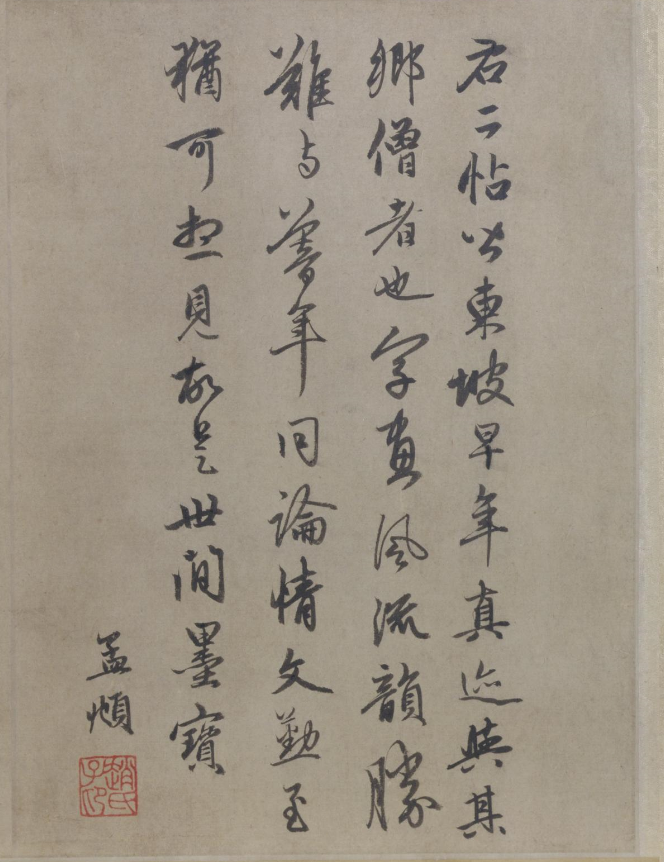 右二帖皆東坡早年真迹與其
鄉僧者也字畫風流韻勝
難与暮年同論情文勤至
猶可想見故是世間墨寶
孟頫
趙氏子昂